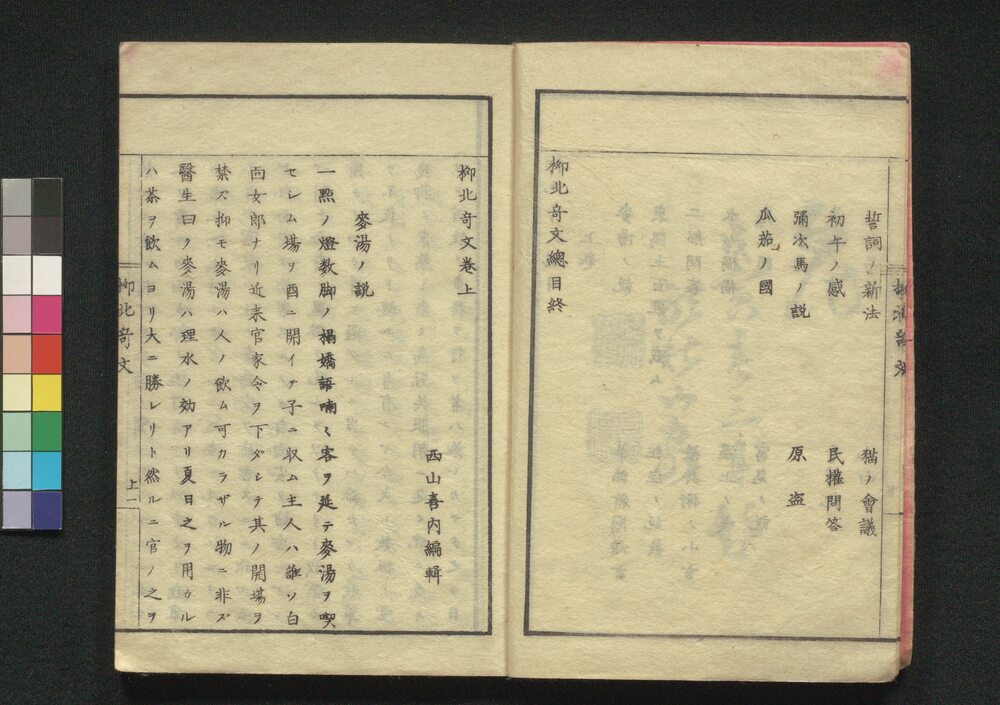 誓詞ノ新法
猫ノ會議
初午ノ感
民權問答
彌次馬ノ説
原盗
瓜茄ノ國
柳北竒文總目終
柳北竒文巻上
西山喜内編輯
麥湯ノ説
一㸃ノ燈数脚ノ榻嬌語喃々客ヲ延テ麥湯ヲ喫
セレム場ヲ酉ニ開イテ子ニ収ム主人ハ誰ソ白
靣女郎ナリ近来官家令ヲ下ダシテ其ノ開塲ヲ
禁ズ抑モ麥湯ハ人ノ飲ム可カラザル物ニ非ズ
醫生曰ク麥湯ハ理水ノ効アリ夏日之ヲ用ウル
ハ茶ヲ飲ムヨリ大ニ勝レリト然ルニ官ノ之ヲ
柳北竒文
上一